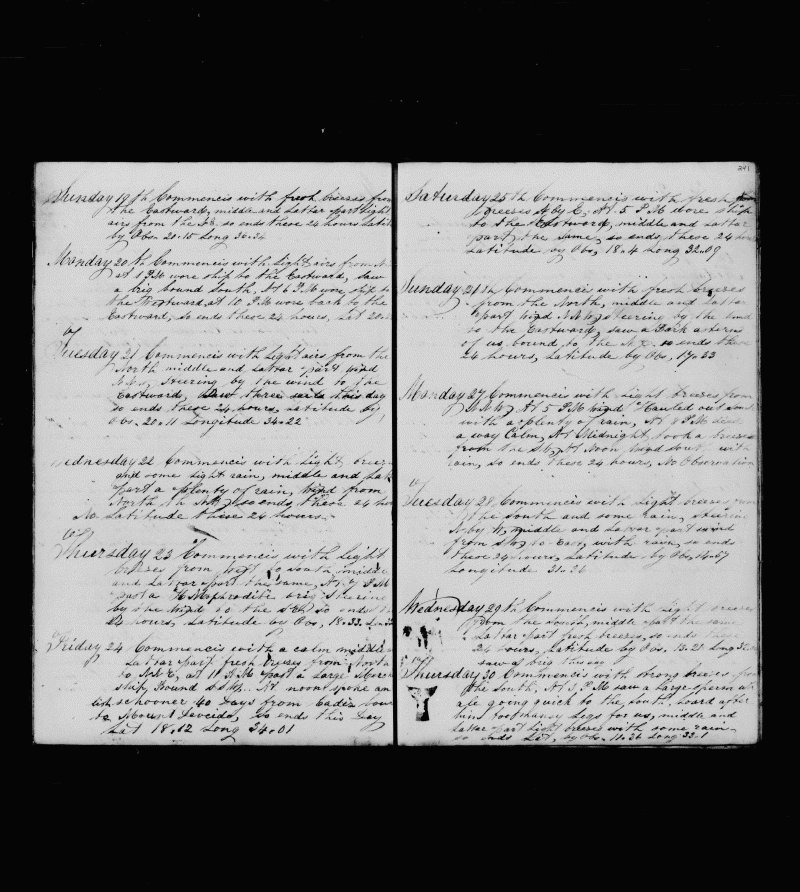 Sunday 19th Commencis with fresh breezes from
the Eastward, middle and Lattar part Light
airs from the NE. so ends these 24 hours Latit
by Obs. 20-15 Long
Monday 20th Commencis with Light airs from N
at 1 P.M wore ship to the Eastward, saw
a brig bound South, At 6 P.M wore ship to
the Westward, at 10 P.M wore back to the
Eastward, so ends these 24 hours, Lat 20
Tuesday 21 Commencis with Light airs from the
North middle and Lattar part wind
steering by the wind to the
Eastward, Saw three sails this day
so ends these 24 hours, Latitude by
Obs. 20-11 Longitude 34-22
Wednesday 22 Commencis with Light breez
and some Light rain, middle and Lat
part a plenty of rain, wind from
North so ends these 24 hou
No Latitude these 24 hours.
Thursday 23 Commencis with Light
breezes from West to South middle
and Lattar part the same, At 7 P.M
past a Hmaphrodite brig steering
by the wind to the so ends th
24 hours, Latitude by Obs, 18-33
Friday 24 Commencis with a calm middle
Lattar part fresh breezes from North
to N.N.E, at 11 A.M past a Large
ship, Bound At noon spoke an
schooner 40 Days from Cadiz boun
to Mount Devedeo, so ends this Day
Lat 18,12 Long 34-01
241
Saturday 25th Commencis with fresh
breezes N by E, At 5 P.M wore ship
to the Eastward, middle and Lattar
part the same, so ends these 24 hours
Latitude by Obs, 18-4 Long 32-09
Sunday 26th Commencis with fresh breezes
from the North, middle and Lattar
part wind N.N.W, steering by the wind
to the Eastward, saw a Bark astern
of us bound to the N.E. so ends these
24 hours, Latitude by Obs, 17-33
Monday 27 Commencis with Light breezes from
N.N.W, At 5 P.M wind Hauled out
with a plenty of rain, At 8 P.M died
a way Calm, At Midnight, took a breeze
from the At Noon wind South with
rain, so ends these 24 hours, No Observation
Tuesday 28 Commencis with Light breezes from
the South and some rain, steering
middle and Lattar part wind
from to East, with rain, so ends
these 24 hours, Latitude by Obs, 14-57
Longitude 31-26
Wednesday 29th Commencis with Light breezes
from the South, middle part the same
Lattar part fresh breezes, so ends these
24 hours, Latitude by Obs. 13-21 Long
saw a brig this day
Thursday 30 Commencis with strong breezes from
the South, At 3 P.M saw a Large sperm wh
ale going quick to the South, Lowrd after
him, middle and
Lattar part Light breezes with some rain
so ends Lat, by Obs. 11-26 Long 33-1